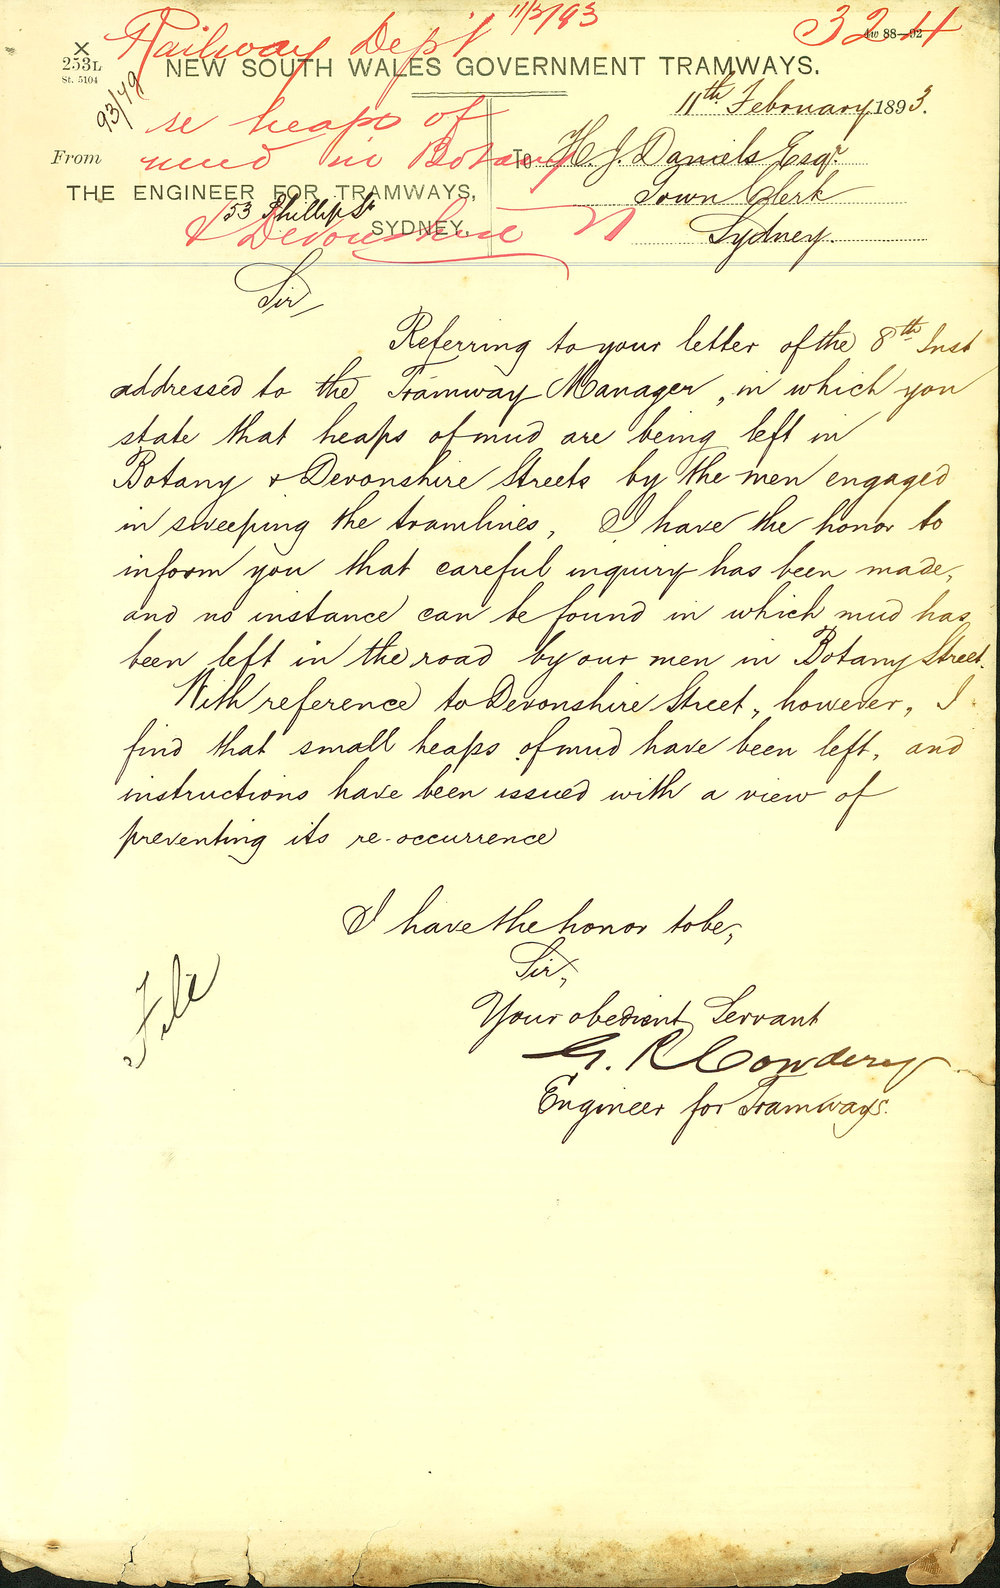 Railway Dep't 11/2/93
324
X
253L
St. 5104
93/79
NEW SOUTH WALES GOVERNMENT TRAMWAYS.
11th February 1893.
re heaps of
mud in Botany
& Devonshire St
From
THE ENGINEER FOR TRAMWAYS,
53 Phillip St
SYDNEY.
To H. J. Daniels Esqr.
Town Clerk
Sydney.
Sir,
Referring to your letter of the 8th Inst
addressed to the Tramway Manager, in which you
state that heaps of mud are being left in
Botany & Devonshire Streets by the men engaged
in sweeping the tramlines, I have the honor to
inform you that careful inquiry has been made,
and no instance can be found in which mud has
been left in the road by our men in Botany Street.
With reference to Devonshire Street, however, I
find that small heaps of mud have been left, and
instructions have been issued with a view of
preventing its re-occurrence
I have the honor to be,
Sir,
Your obedient Servant
G. R. Cowdery
Engineer for Tramways.
File